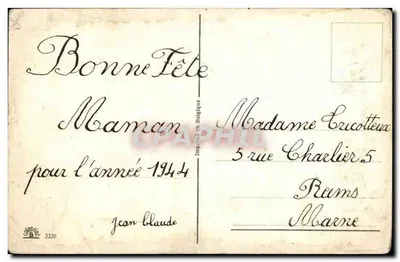 Bonne Fête
Maman
pour l'année 1944
Jean Claude
3336
Imprimé en Belgique
CPAPHIL
Madame Tricotteux
5 rue Charlier 5
Reims
Marne